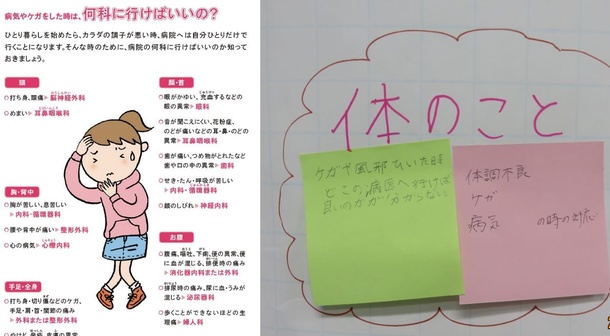 病気やケガをした時は、何科に行けばいいの？
ひとり暮らしを始めたら、カラダの調子が悪い時、病院へは自分ひとりだけで
行くことになります。そんな時のために、病院の何科に行けばいいのか知って
おきましょう。
頭
○打ち身、頭痛▶脳神経外科
○めまい▶耳鼻咽喉科
顔・首
○眼がかゆい、充血するなどの
眼の異常▶眼科
○音が聞こえにくい、花粉症、
のどが痛いなどの耳・鼻・のどの
異常▶耳鼻咽喉科
○歯が痛い、つめ物がとれたなど
歯や口の中の異常▶歯科
○せき・たん・呼吸が苦しい
▶内科・循環器科
○顔のしびれ▶神経内科
胸・背中
○胸が苦しい、息苦しい
▶内科・循環器科
○腰や背中が痛い▶整形外科
○心の病気▶心療内科
お腹
○腹痛、嘔吐、下痢、便の異常、便
に血が混じる、排便時の痛み
▶消化器内科または外科
○排尿時の痛み、尿に血・うみが
混じる▶泌尿器科
○歩くことができないほどの生
理痛▶婦人科
手足・全身
○打ち身・切り傷などのケガ、
手・足・肩・首・関節の痛み
▶外科または整形外科
体のこと
ケガや風邪ひいた時
どこの病医へ行けば
良いのかが分かつない
体調不良
ケガ
病気 の時の対応